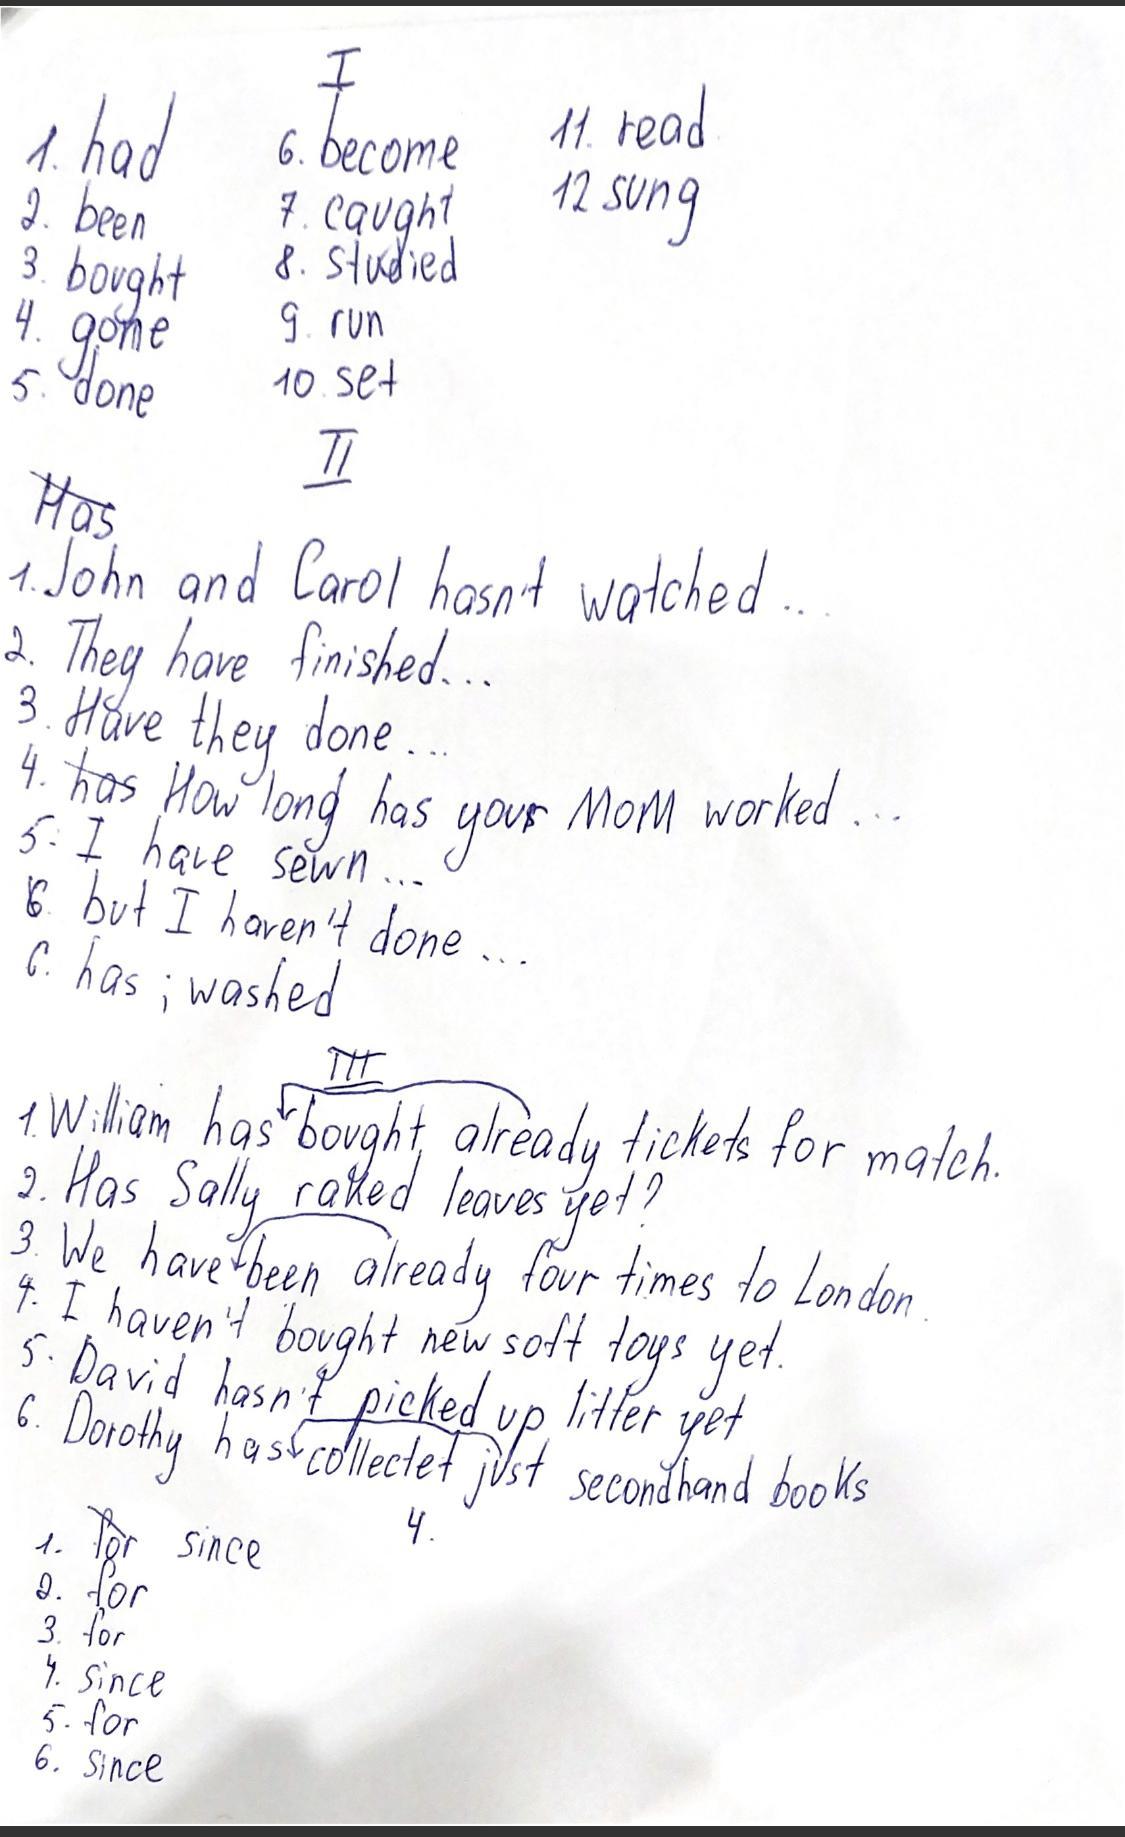 I
1. had
2. been
3. bought
4. gone
5. done
6. become
7. caught
8. studied
9. run
10. set
11. read
12 sung
II
Has
1. John and Carol hasn't watched ...
2. They have finished...
3. Have they done ...
4. has How long has your MoM worked ...
5. I have sewn ...
6 but I haven't done ...
6. has ; washed
III
1. William has bought already tickets for match.
2. Has Sally raked leaves yet?
3. We have been already four times to London.
4. I haven't bought new soft toys yet.
5. David hasn't picked up litter yet
6. Dorothy has collectet just secondhand books
4.
1. for since
2. for
3. for
4. since
5. for
6. since